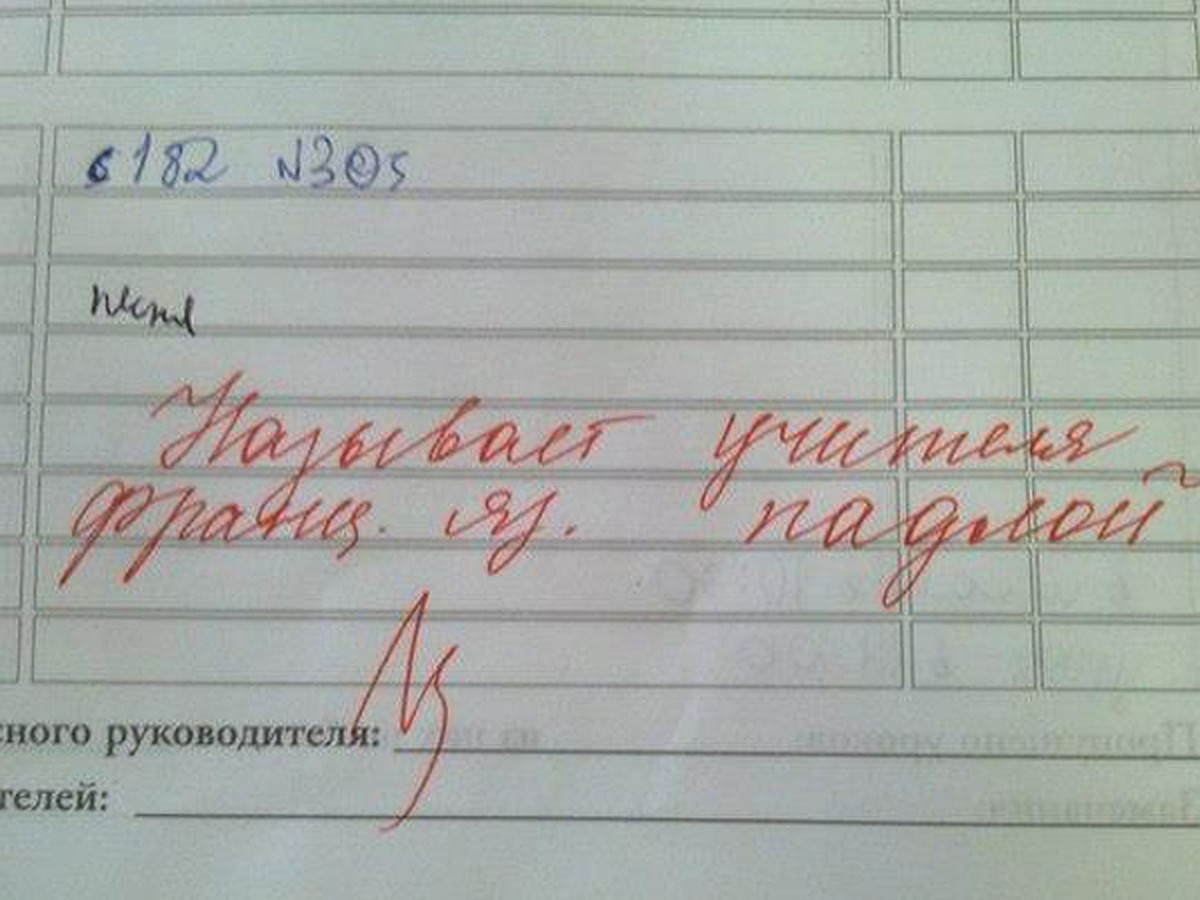 с 182 N3
песня
Называет учителя
франц. яз. падлой
сного руководителя:
телей: